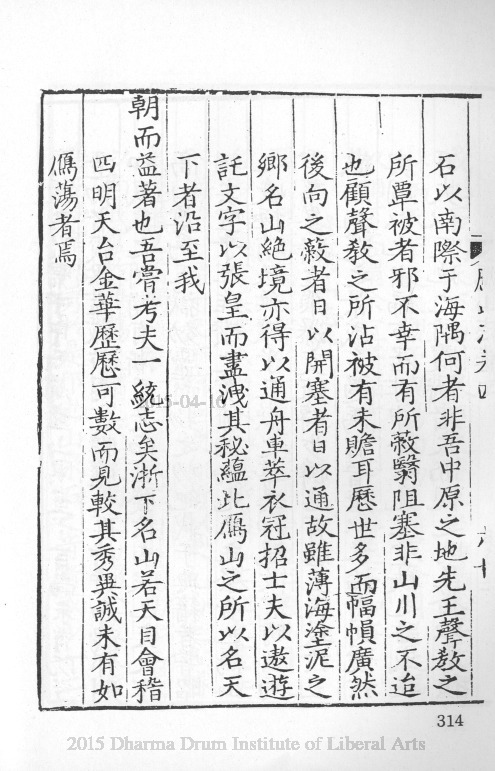 石以南際于海隅何者非吾中原之地先王聲教之
所覃被者邪不幸而有所蔽翳阻塞非山川之不迨
也顧聲教之所沾被有未贍耳歷世多而幅幀廣然
後向之蔽者日以開塞者日以通故雖薄海塗泥之
鄉名山絕境亦得以通舟車萃衣冠招士夫以遨遊
託文字以張皇而盡洩其秘蘊此鴈山之所以名天
下者沿至我
朝而益著也吾嘗考夫一統志矣浙下名山若天目會稽
四明天台金華歷歷可數而見較其秀異誠未有如
鴈蕩者焉
314
2015 Dharma Drum Institute of Liberal Arts